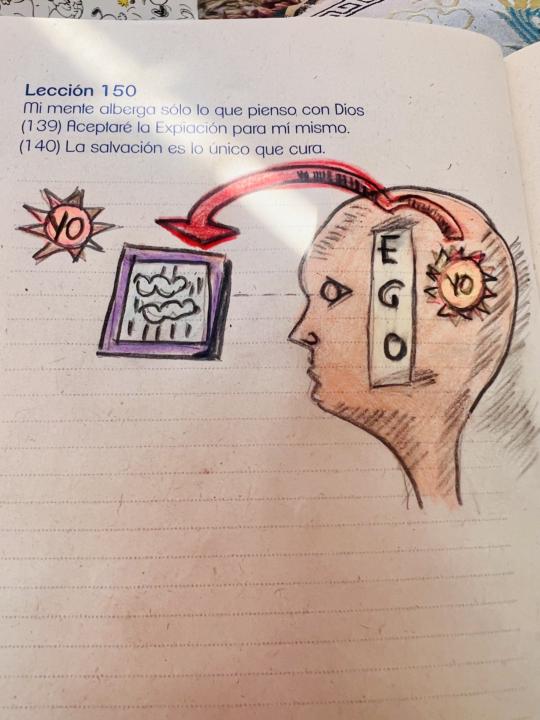 Lección 150
Mi mente alberga sólo lo que pienso con Dios
(139) Aceptaré la Expiación para mí mismo.
(140) La salvación es lo único que cura.
YO
E
G
O
YO